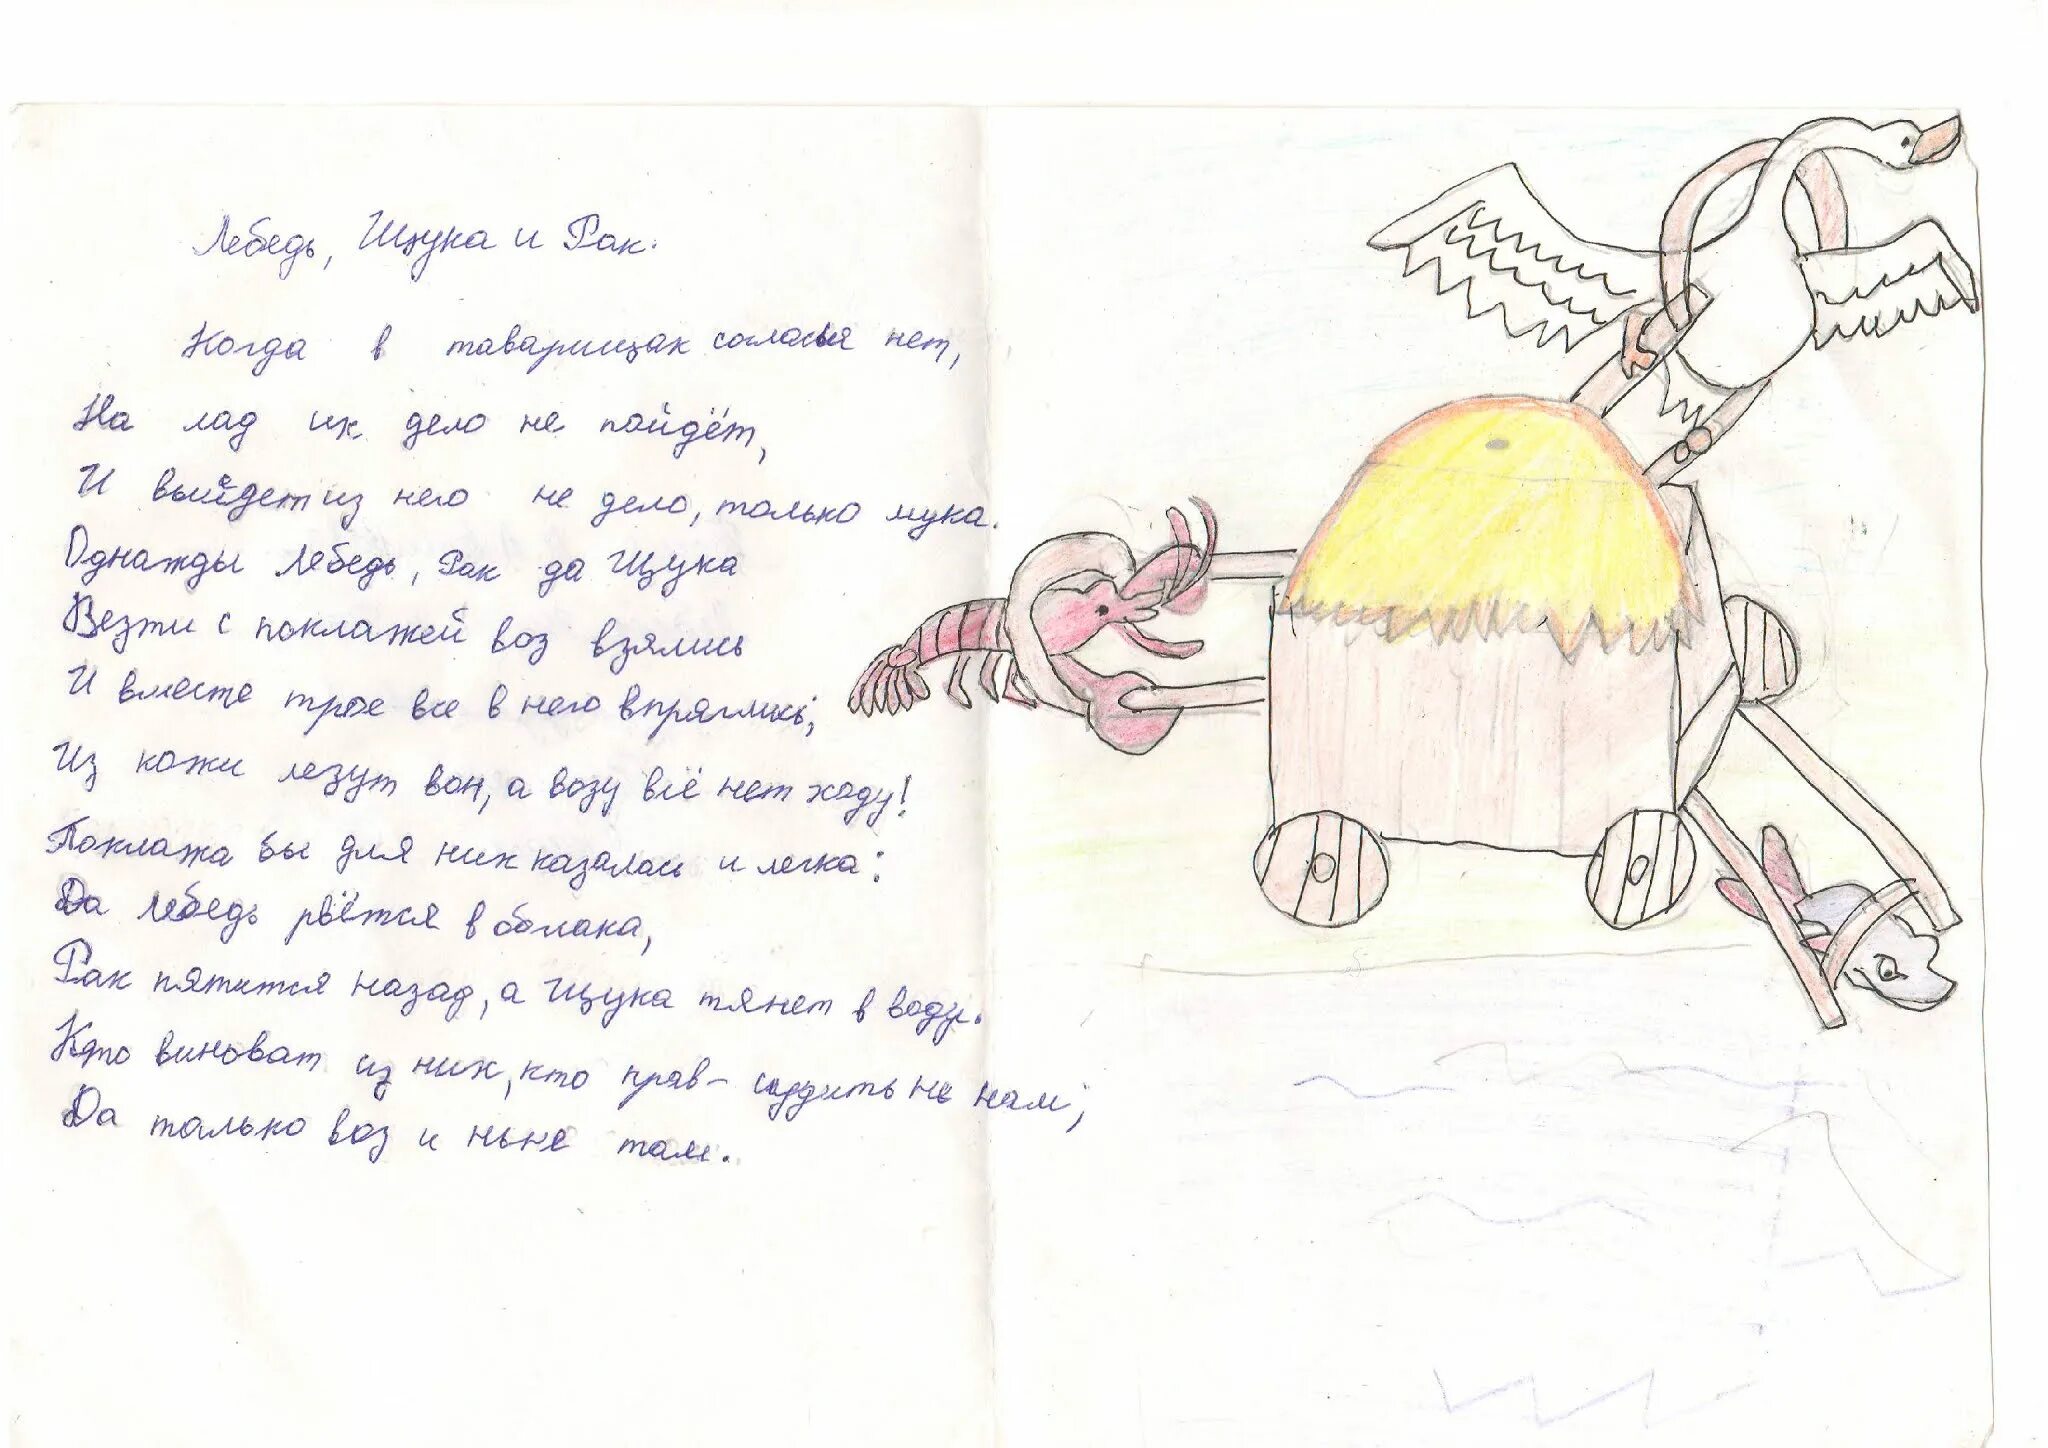 Лебедь, Щука и Рак.
Когда в таварищах согласья нет,
На лад их дело не пойдёт,
И выйдет из него не дело, только мука.
Однажды Лебедь, Рак да Щука
Везти с поклажей воз взялись
И вместе трое все в него впряглись;
Из кожи лезут вон, а возу всё нет ходу!
Поклажа бы для них казалась и легка:
Да Лебедь рвётся в облака,
Рак пятится назад, а Щука тянет в воду.
Кто виноват из них, кто прав - судить не нам;
Да только воз и ныне там.